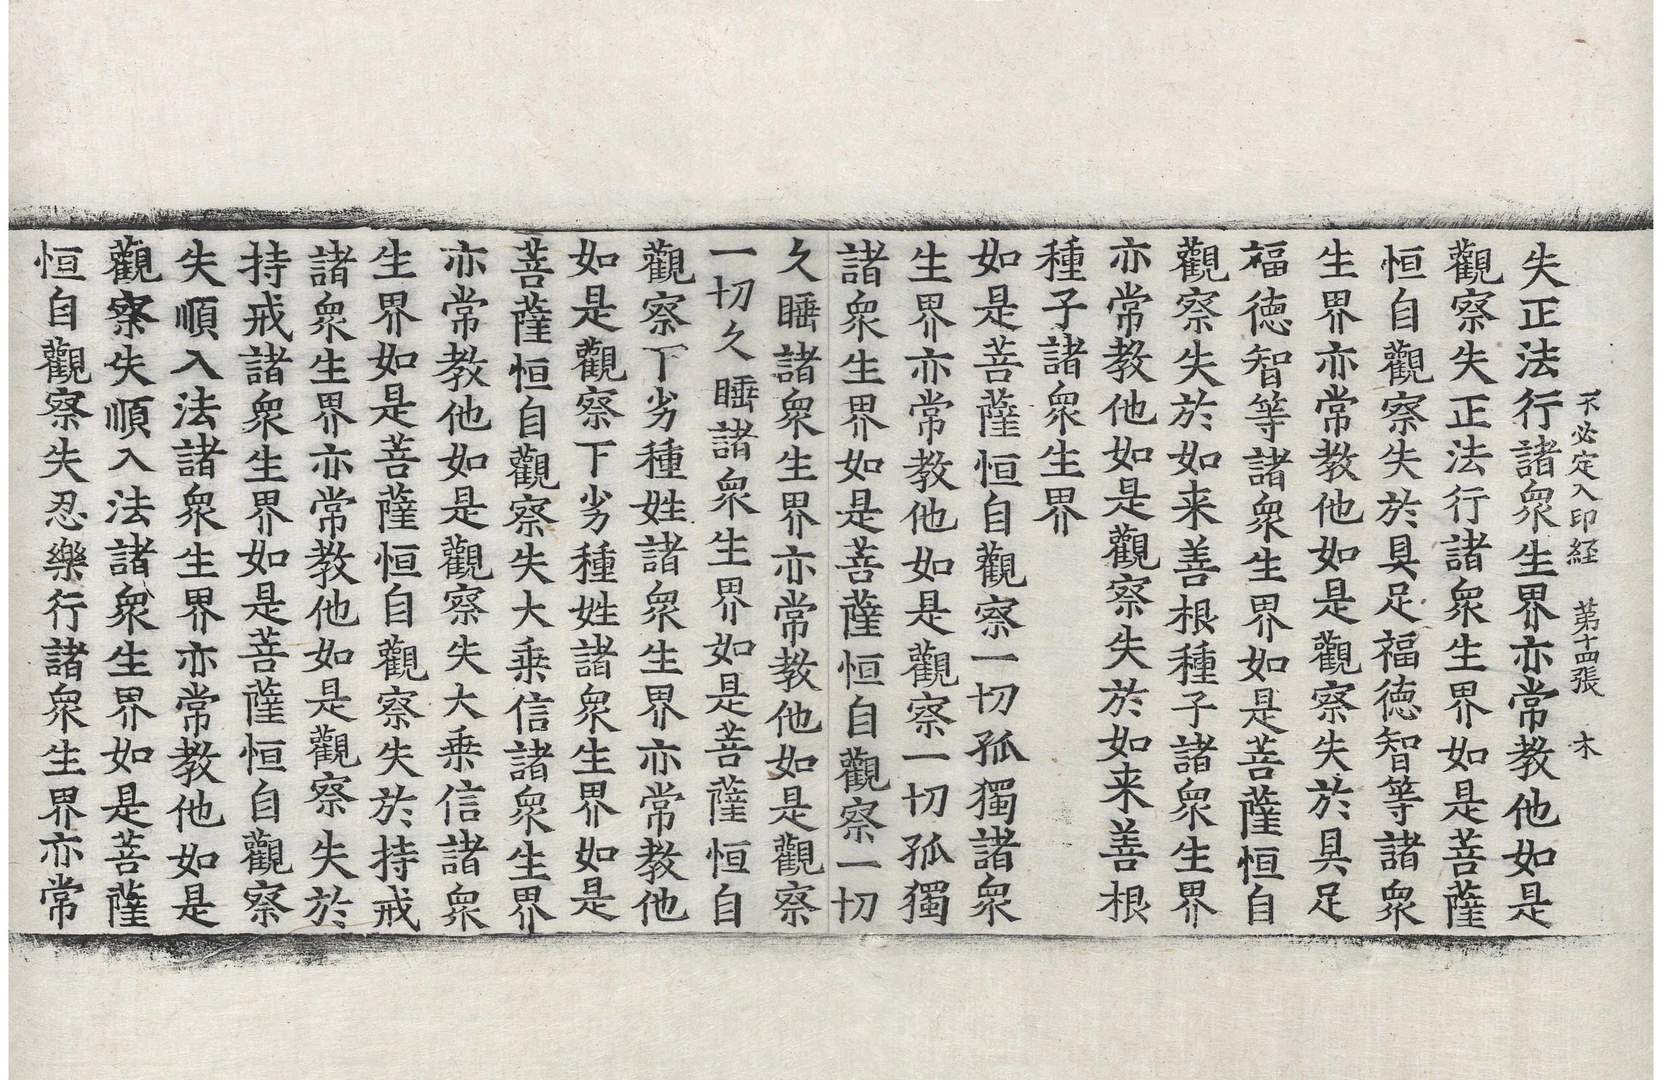 不必定入印経 第十四張 木
失正法行諸衆生界亦常教他如是
觀察失正法行諸衆生界如是菩薩
恒自觀察失於具足福德智等諸衆
生界亦常教他如是觀察失於具足
福德智等諸衆生界如是菩薩恒自
觀察失於如来善根種子諸衆生界
亦常教他如是觀察失於如来善根
種子諸衆生界
如是菩薩恒自觀察一切孤獨諸衆
生界亦常教他如是觀察一切孤獨
諸衆生界如是菩薩恒自觀察一切
久睡諸衆生界亦常教他如是觀察
一切久睡諸衆生界如是菩薩恒自
觀察下劣種姓諸衆生界亦常教他
如是觀察下劣種姓諸衆生界如是
菩薩恒自觀察失大乗信諸衆生界
亦常教他如是觀察失大乗信諸衆
生界如是菩薩恒自觀察失於持戒
諸衆生界亦常教他如是觀察失於
持戒諸衆生界如是菩薩恒自觀察
失順入法諸衆生界亦常教他如是
觀察失順入法諸衆生界如是菩薩
恒自觀察失忍樂行諸衆生界亦常